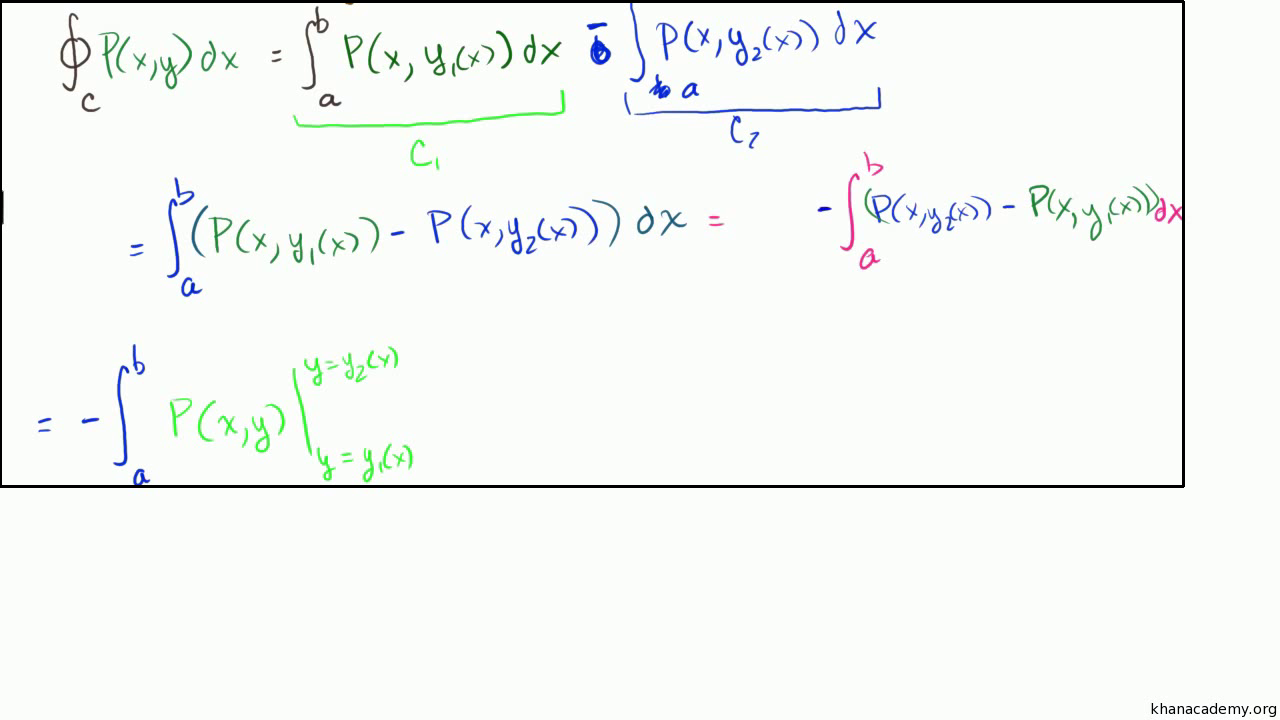 ∮_C P(x,y) dx = ∫_a^b P(x, y₁(x)) dx − ∫_a P(x, y₂(x)) dx
C₁ C₂
= ∫_a^b (P(x, y₁(x)) − P(x, y₂(x))) dx = − ∫_a^b (P(x, y₂(x)) − P(x, y₁(x))) dx
= − ∫_a^b P(x,y) |_{y = y₁(x)}^{y = y₂(x)}
khanacademy.org